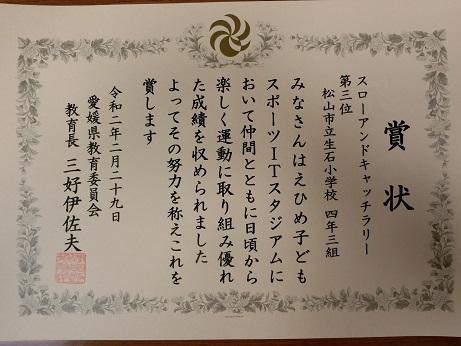 賞状
スローアンドキャッチラリー
第三位
松山市立生石小学校 四年三組
みなさんはえひめ子ども
スポーツITスタジアムに
おいて仲間とともに日頃から
楽しく運動に取り組み優れ
た成績を収められました
よってその努力を称えこれを
賞します
令和二年二月二十九日
愛媛県教育委員会
教育長 三好伊佐夫